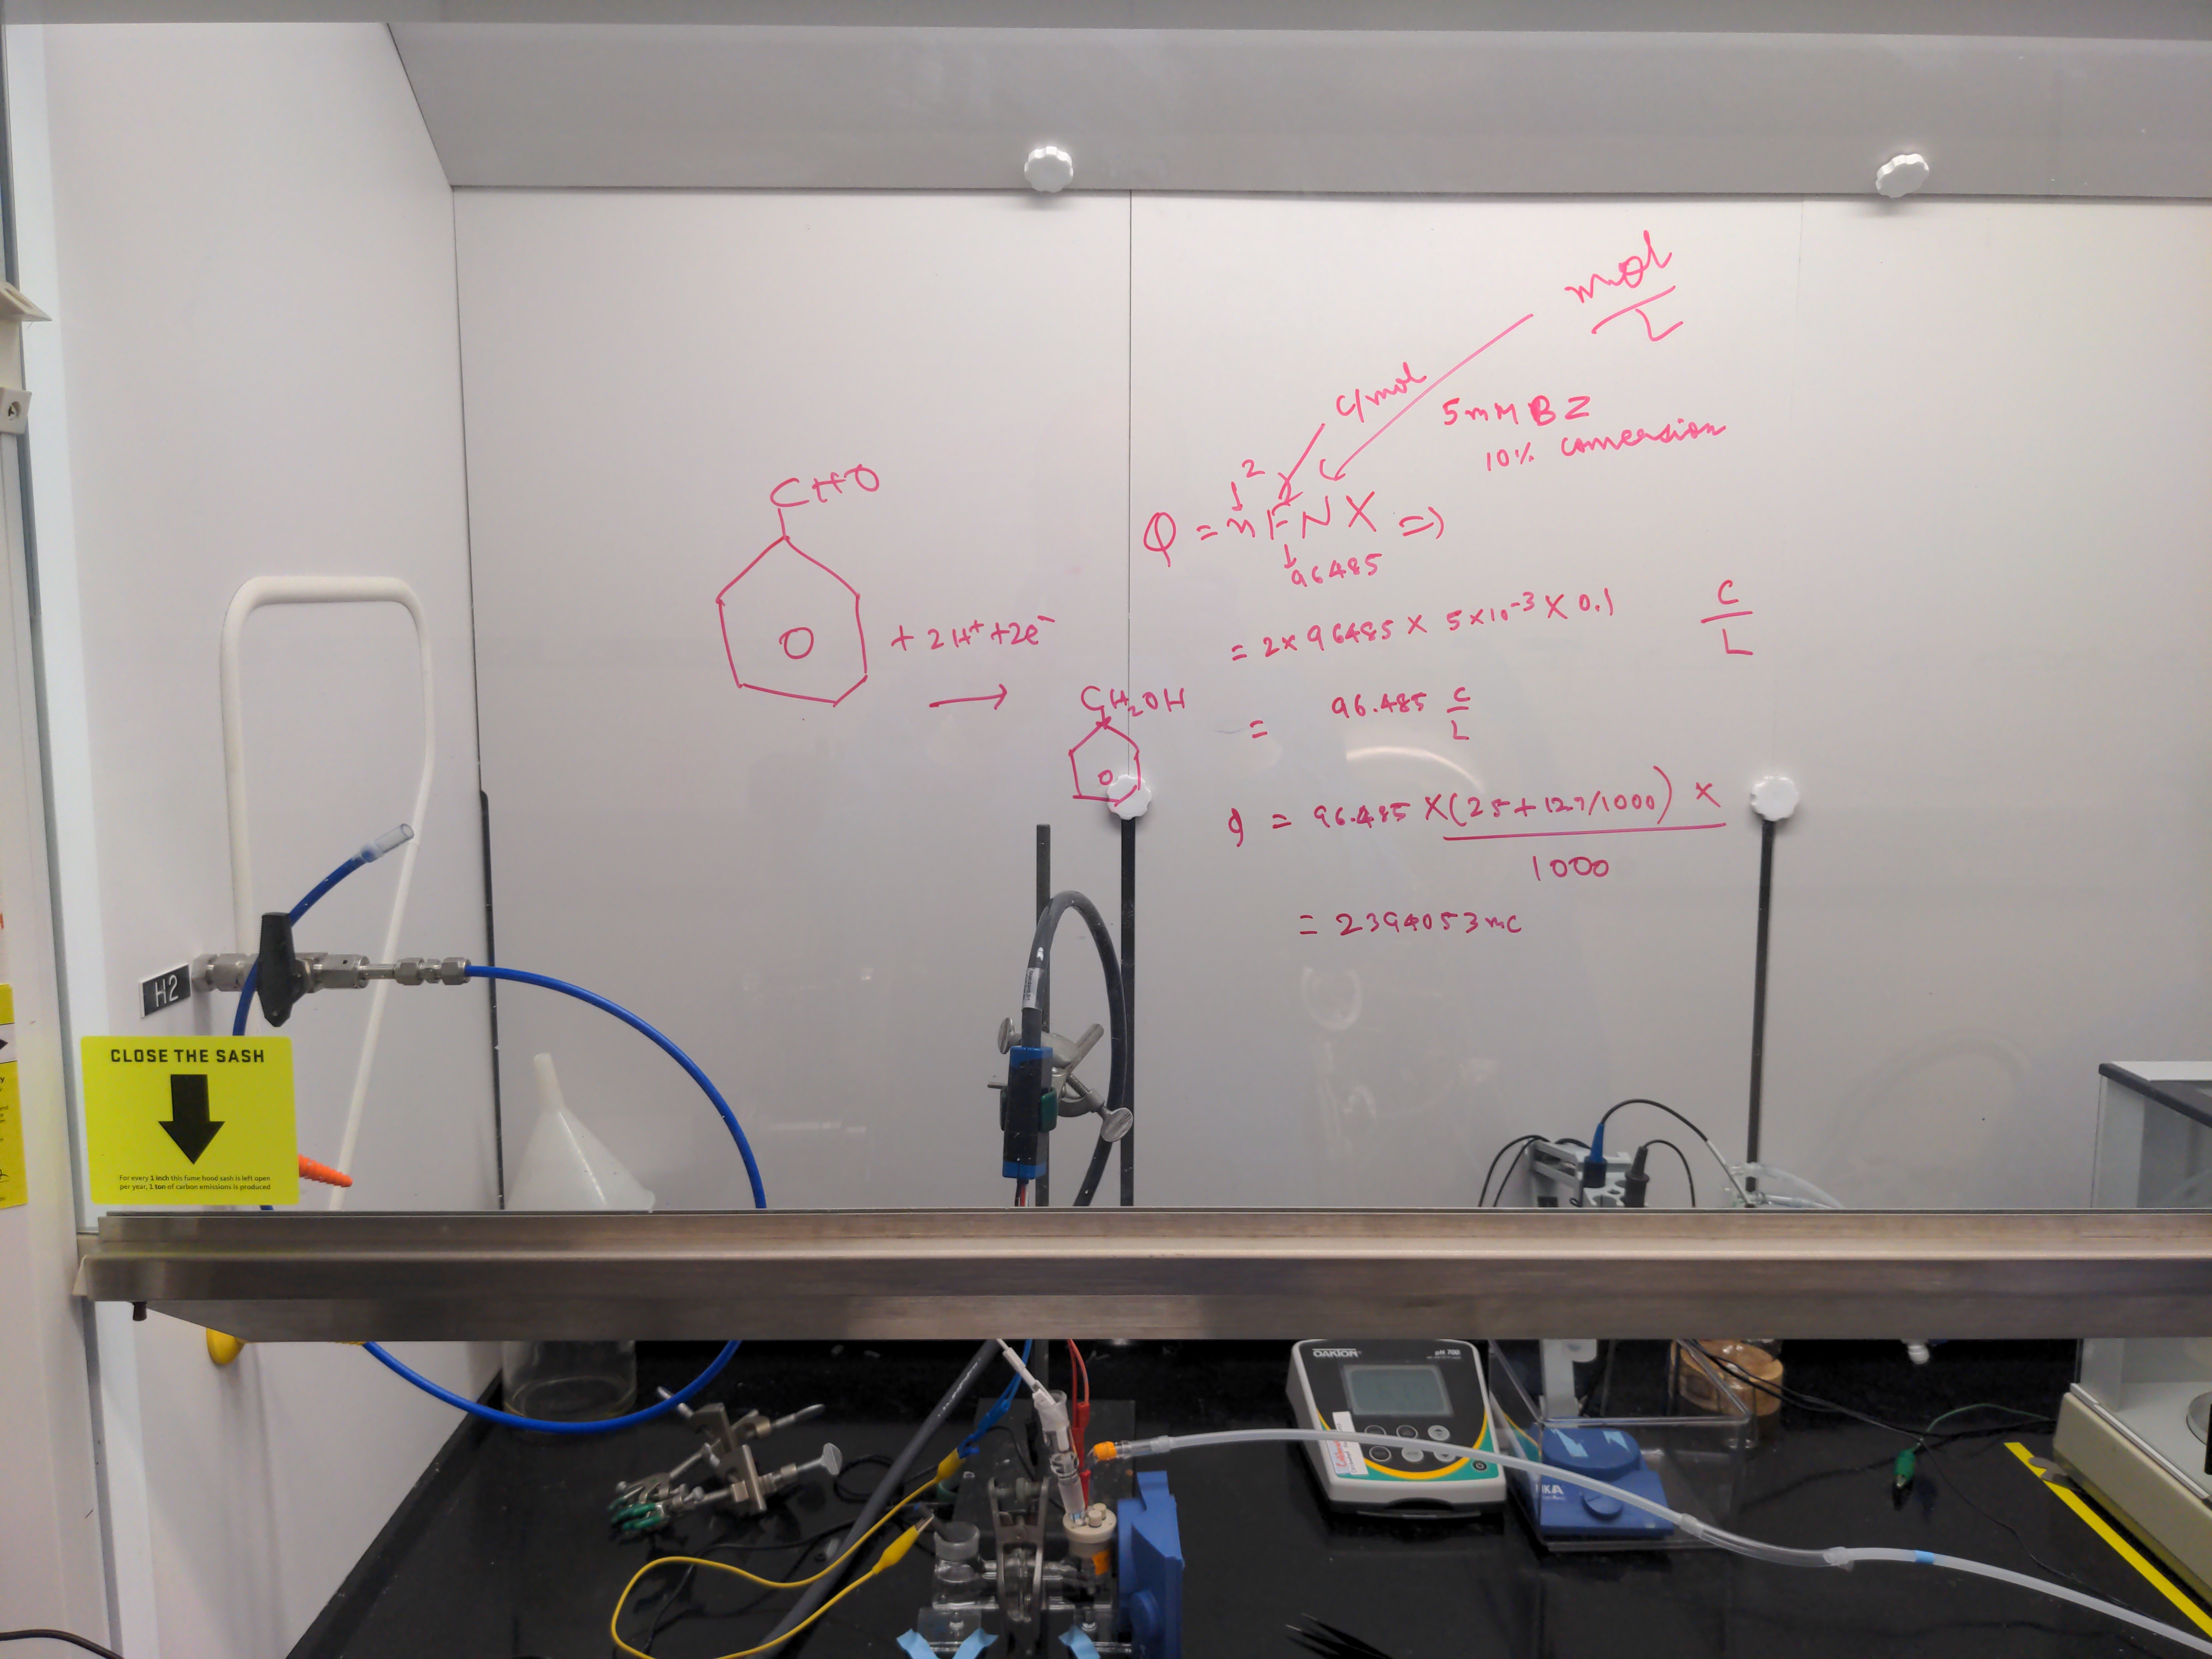 mol
L
C/mol
5mM BZ
10% conversion
2
Q = nFNX =>
96485
= 2 x 96485 x 5x10-3 x 0.1 C/L
CHO
+ 2H+ + 2e-
→
CH2OH
= 96.485 C/L
q = 96.485 x (25+127/1000) x
1000
= 2394053mC
H2
CLOSE THE SASH
For every 1 inch this fume hood sash is left open
per year, 1 ton of carbon emissions is produced
OAKTON pH 700
IKA